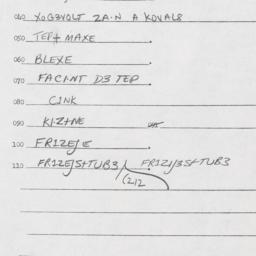 040 XOG3VOLT 2A·N A KOVAL8
050 TEP+ MAXE
060 BLEXE
070 FACI·NT D3 TEP
080 CINK
090 KI·Z+NE
100 FR1ZEJE
110 FR1ZEJS+TUB3 FR1ZIJ3S+TUB3
(212